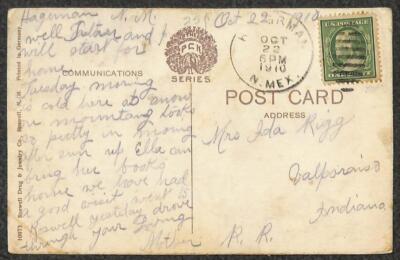 Hagerman N. M. Oct 22, 1910
well Tritzer and I
will start for
home
Tuesday morning
is cold here at
on mountains looks
so pretty in morning
after sun up Ella can
bring her books
home we have had
a good visit went to
Roswell yesterday drove
through your
Mother
COMMUNICATIONS
PCK
SERIES
HAGERMAN
OCT
22
6PM
1910
N. MEX.
U.S. POSTAGE
POST CARD
ADDRESS
Mrs Ida Rigg
Valparaiso
Indiana
R. R.
10673 Roswell Drug & Jewelry Co., Roswell, N. M. Printed in Germany